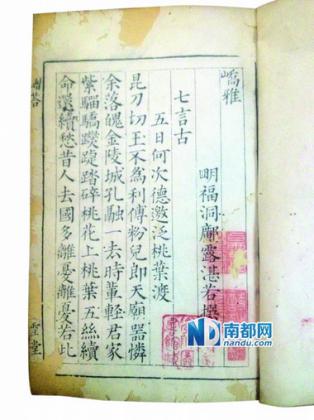 嶠雅
明福洞鄺露湛若撰
七言古
五日何次德邀泛桃葉渡
昆刀切玉不為利傅粉兒郎天廟器憐
余落魄金陵城孔融一去時輩輕君家
紫騮驕躞蹀踏碎桃花上桃葉五絲續
命還續愁昔人去國多離憂離憂若此
雪堂
南都网
nandu.com